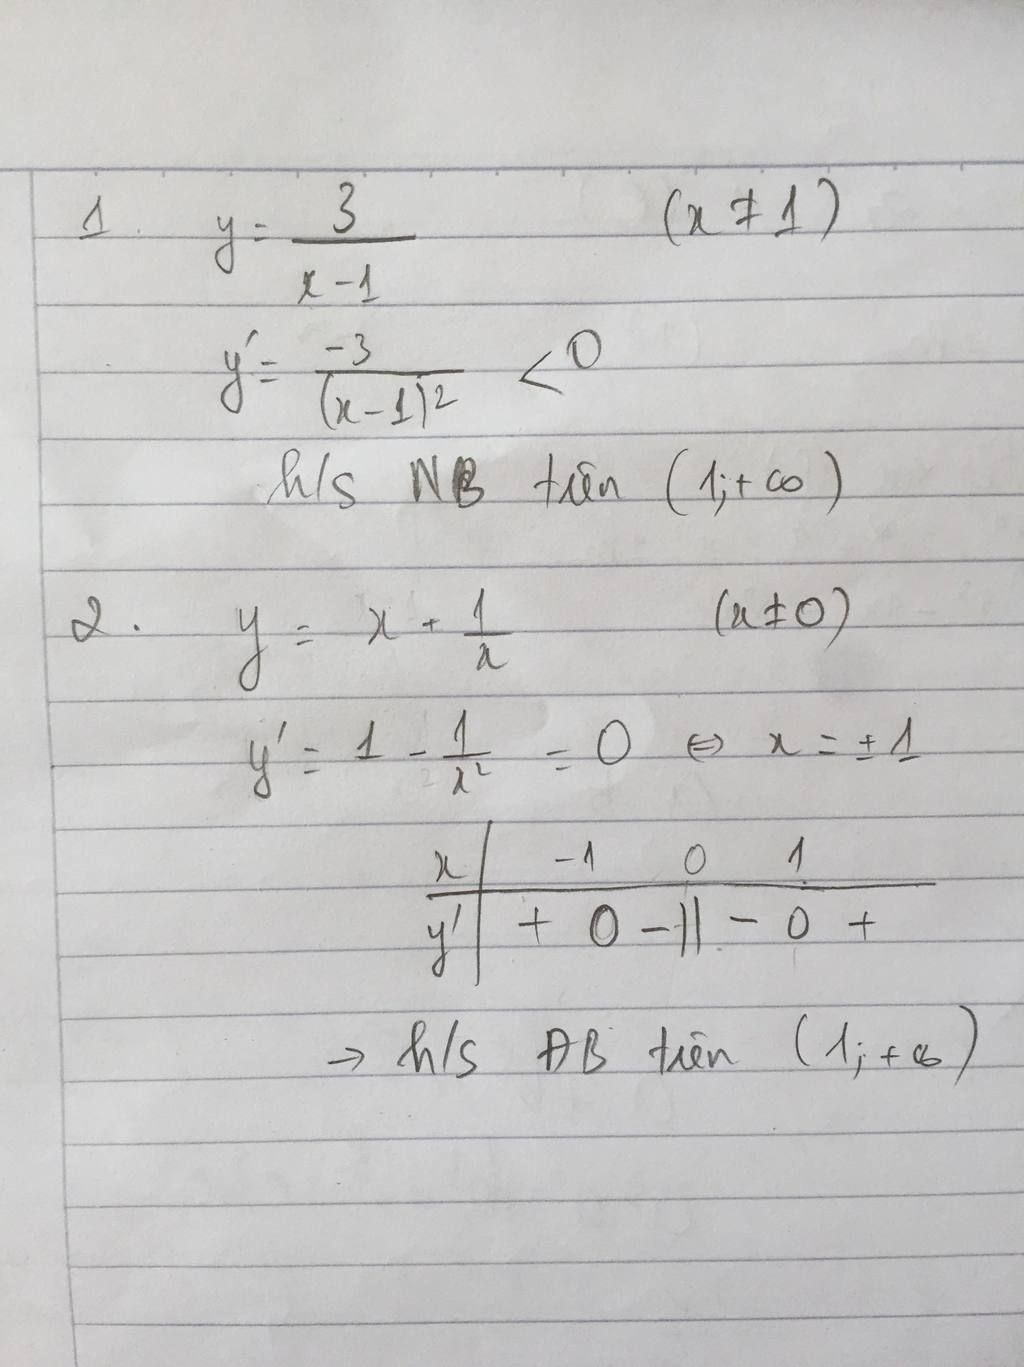 1. y = 3/(x-1) (x ≠ 1)
y' = -3/(x-1)² < 0
h/s NB trên (1;+∞)
2. y = x + 1/x (x ≠ 0)
y' = 1 - 1/x² = 0 ⇔ x = ±1
x | -1 0 1
y' | + 0 - || - 0 +
→ h/s ĐB trên (1;+∞)